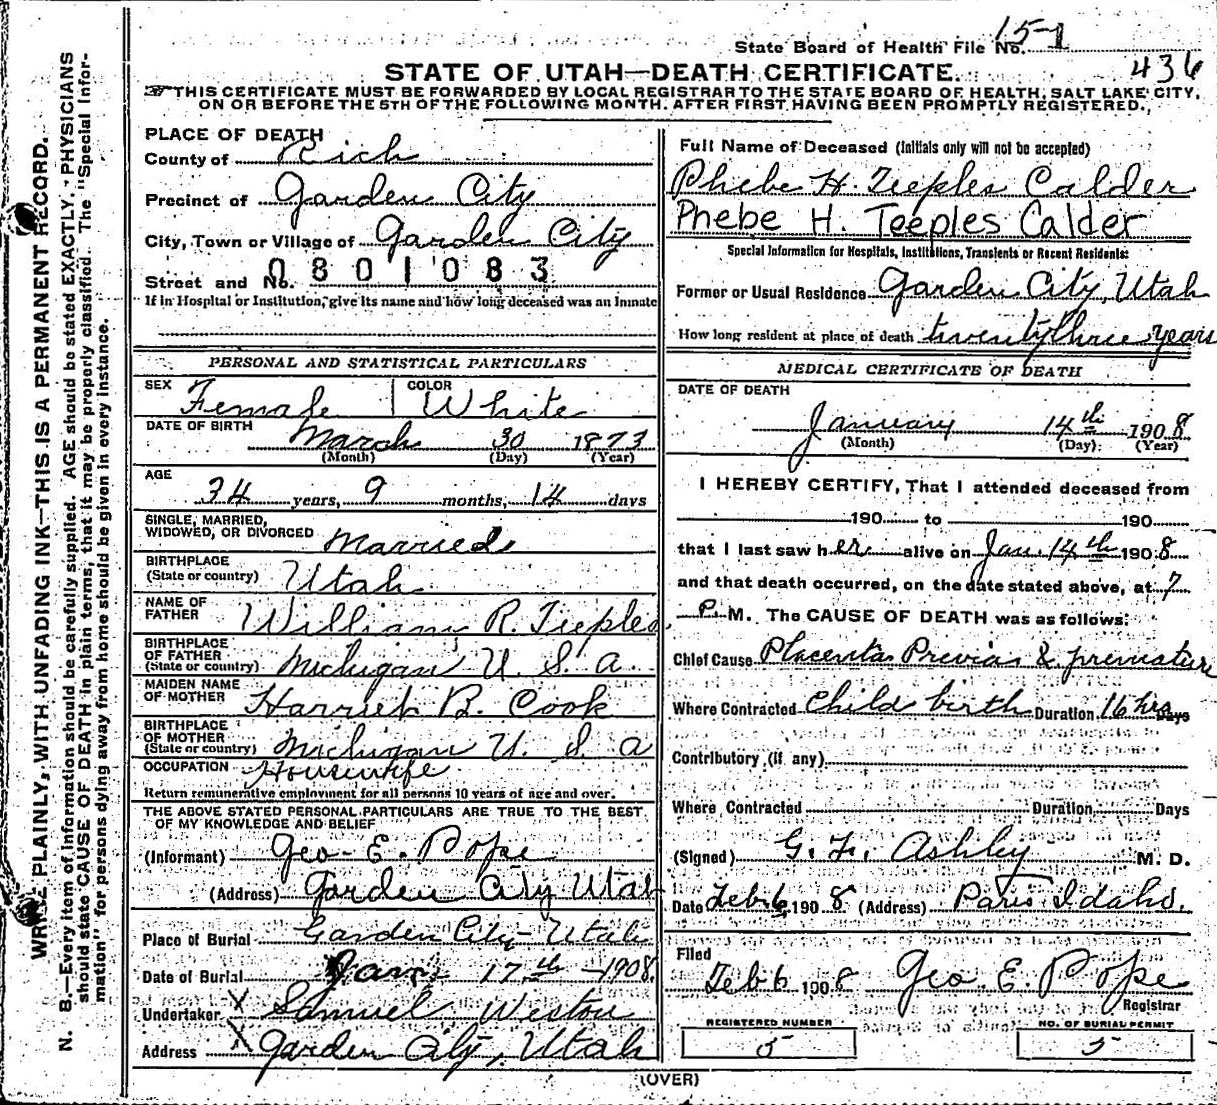 State Board of Health File No. 15-1
436
STATE OF UTAH—DEATH CERTIFICATE.
THIS CERTIFICATE MUST BE FORWARDED BY LOCAL REGISTRAR TO THE STATE BOARD OF HEALTH, SALT LAKE CITY,
ON OR BEFORE THE 5TH OF THE FOLLOWING MONTH, AFTER FIRST HAVING BEEN PROMPTLY REGISTERED.
WRITE PLAINLY, WITH UNFADING INK—THIS IS A PERMANENT RECORD.
N. B.—Every item of information should be carefully supplied. AGE should be stated EXACTLY. PHYSICIANS
should state CAUSE OF DEATH in plain terms, that it may be properly classified. The "Special Infor-
mation" for persons dying away from home should be given in every instance.
PLACE OF DEATH
County of Rich
Precinct of Garden City
City, Town or Village of Garden City
Street and No. 0801083
If in Hospital or Institution, give its name and how long deceased was an Inmate
PERSONAL AND STATISTICAL PARTICULARS
SEX Female COLOR White
DATE OF BIRTH March 30 1873
(Month) (Day) (Year)
AGE 34 years, 9 months, 14 days
SINGLE, MARRIED,
WIDOWED, OR DIVORCED Married
BIRTHPLACE
(State or country) Utah
NAME OF
FATHER William R. Teeples
BIRTHPLACE
OF FATHER
(State or country) Michigan U. S. A.
MAIDEN NAME
OF MOTHER Harriet B. Cook
BIRTHPLACE
OF MOTHER
(State or country) Michigan U. S. A
OCCUPATION Housewife
Return remunerative employment for all persons 10 years of age and over.
THE ABOVE STATED PERSONAL PARTICULARS ARE TRUE TO THE BEST
OF MY KNOWLEDGE AND BELIEF
(Informant) Geo. E. Pope
(Address) Garden City Utah
Place of Burial Garden City Utah
Date of Burial Jan. 17th 1908
Undertaker X Samuel Weston
Address X Garden City, Utah
Full Name of Deceased (Initials only will not be accepted)
Phebe H. Teeples Calder
Phebe H. Teeples Calder
Special Information for Hospitals, Institutions, Transients or Recent Residents:
Former or Usual Residence Garden City, Utah
How long resident at place of death twenty three years
MEDICAL CERTIFICATE OF DEATH
DATE OF DEATH
January 14th 1908
(Month) (Day) (Year)
I HEREBY CERTIFY, That I attended deceased from
190 to 190
that I last saw her alive on Jan. 14th 1908
and that death occurred, on the date stated above, at 7
P. M. The CAUSE OF DEATH was as follows:
Chief Cause Placenta Previa & premature
Where Contracted Child birth Duration 16 hrs Days
Contributory (if any)
Where Contracted Duration Days
(Signed) G. F. Ashley M. D.
Date Feb 6, 1908 (Address) Paris Idaho.
Filed
Feb 6 1908 Geo. E. Pope
Registrar
REGISTERED NUMBER
5
NO. OF BURIAL PERMIT
5
(OVER)